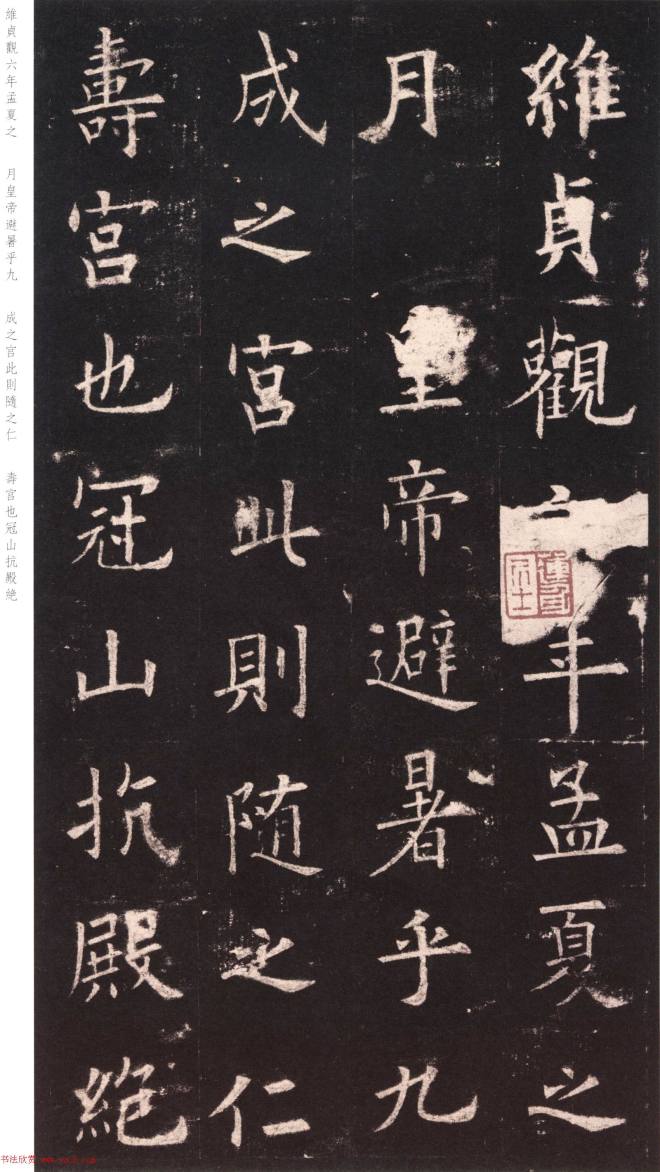 維貞觀六年孟夏之
月皇帝避暑乎九
成之宮此則随之仁
壽宮也冠山抗殿絶
維貞觀六年孟夏之 月皇帝避暑乎九 成之宮此則隨之仁 壽宮也冠山抗殿絶
书法欣赏